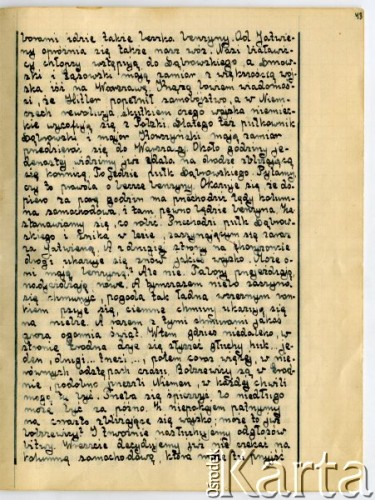 43
borami idzie także beczka benzyny. Od Jatwie-
ny opróżnia się także nasz wóz. Nasi białowi-
cy chłopcy wstępują do Dąbrowskiego, a Dmow-
ski i Łasowski mają zamiar z większością woj-
ska iść na Warszawę. Krążą bowiem wiadomoś-
ci, że Hitler popełnił samobójstwo, a w Niem-
czech rewolucja skutkiem czego wojska niemiec-
kie wycofują się z Polski. Dlatego też pułkownik
Dąbrowski i major mają zamiar
przedzierać się do Warszawy. Około godziny je-
denastej widzimy już zdala na drodze zbliżającą
się konnicę. To jedzie pułk Dąbrowskiego. Pytamy,
czy to prawda o beczce benzyny. Okazuje się że do-
piero za parę godzin ma przechodzić tędy kolum-
na samochodowa, i tam pewno będzie benzyna. Za-
stanawiamy się, co robić. Przechodzi pułk Dąbrow-
skiego i znika w lesie, zaczynającym się zaraz
za Jatwieną. A z drugiej strony na horyzoncie
drogi ukazuje się znów jakieś wojsko. Może o-
ni mają benzynę? Ale nie. Tabory przyjeżdżają,
nadjeżdżają nowe. A tymczasem niebo zaczyna
się chmurzyć, pogoda tak ładna wczesnym ran-
kiem psuje się, ciemne chmury ukazują się
na niebie. A razem z tymi chmurami jakaś
zmora ogarnia świat. Wtem gdzieś niedaleko, w
stronie Grodna daje się słyszeć głuchy huk... je-
den, drugi... trzeci..., potem coraz więcej, w nie-
równych odstępach czasu. Bolszewicy są w Grod-
nie, podobno przeszli Niemen, w każdej chwili
mogą tu być. Trzeba się śpieszyć bo niedługo
może być za późno. Z niepokojem patrzymy
na czarno zbliżające się wojsko; może to już
bolszewicy? I trwożnie nasłuchujemy odgłosów
bitwy. Wreszcie decydujemy już nie czekać na
kolumnę samochodową, która może tu przyjść
ośrodek
Karta